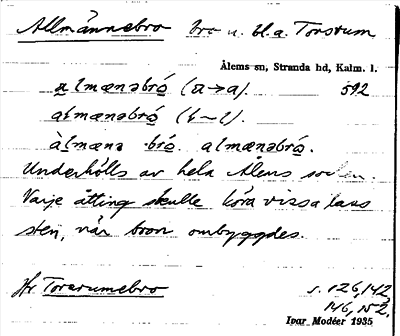 Allmännebro bro u. bl.a. Torsrum
Ålems sn, Stranda hd, Kalm. l.
a̲lmænəbró̲ (a→a). 592
aɫmænəbró̲ (ɫ~l).
àlmænə bró̲. almænəbró̲.
Underhölls av hela Ålems socken.
Varje åtting skulle köra vissa lass
sten, när bron ombyggdes.
Jfr Torsrumebro s. 126, 142,
146, 152,
Ivar Modéer 1935